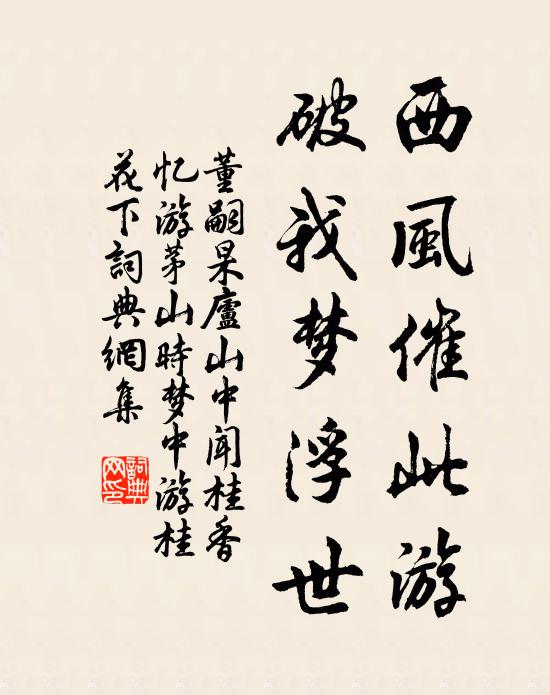 西風催此游
破我梦浮世
董嗣杲廬山中闻桂香
忆游茅山時梦中游桂
花下詞典網集
詞典网印